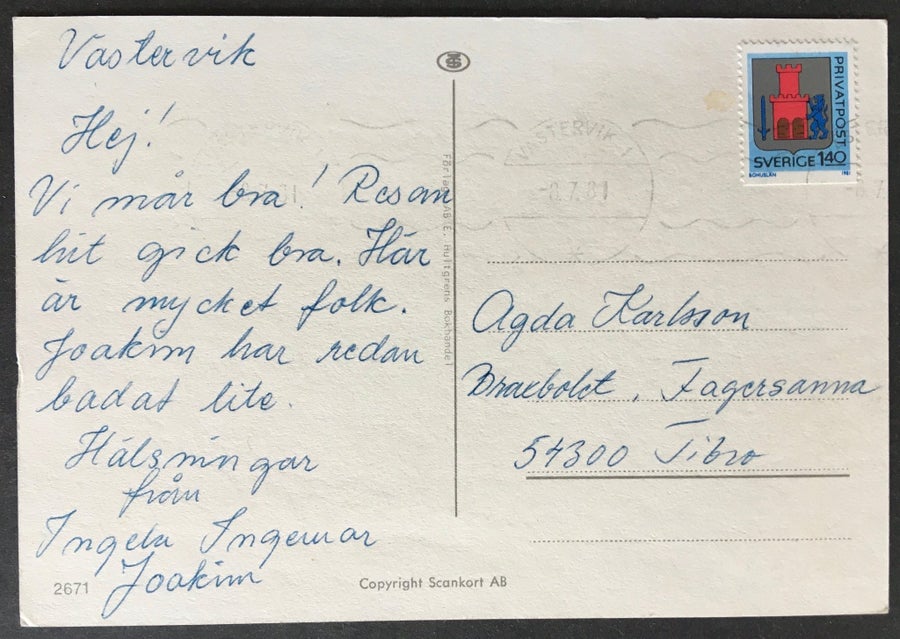 Västervik
Hej!
Vi mår bra! Resan
hit gick bra. Här
är mycket folk.
Joakim har redan
badat lite.
Hälsningar
från
Ingela Ingemar
Joakim
2671
Copyright Scankort AB
Förlag: AB C. E. Hultgrens Bokhandel
VÄSTERVIK 1
-8.7.81
PRIVATPOST
SVERIGE 140
BOHUSLÄN 1981
Agda Karlsson
Fagersanna
54300 Tibro